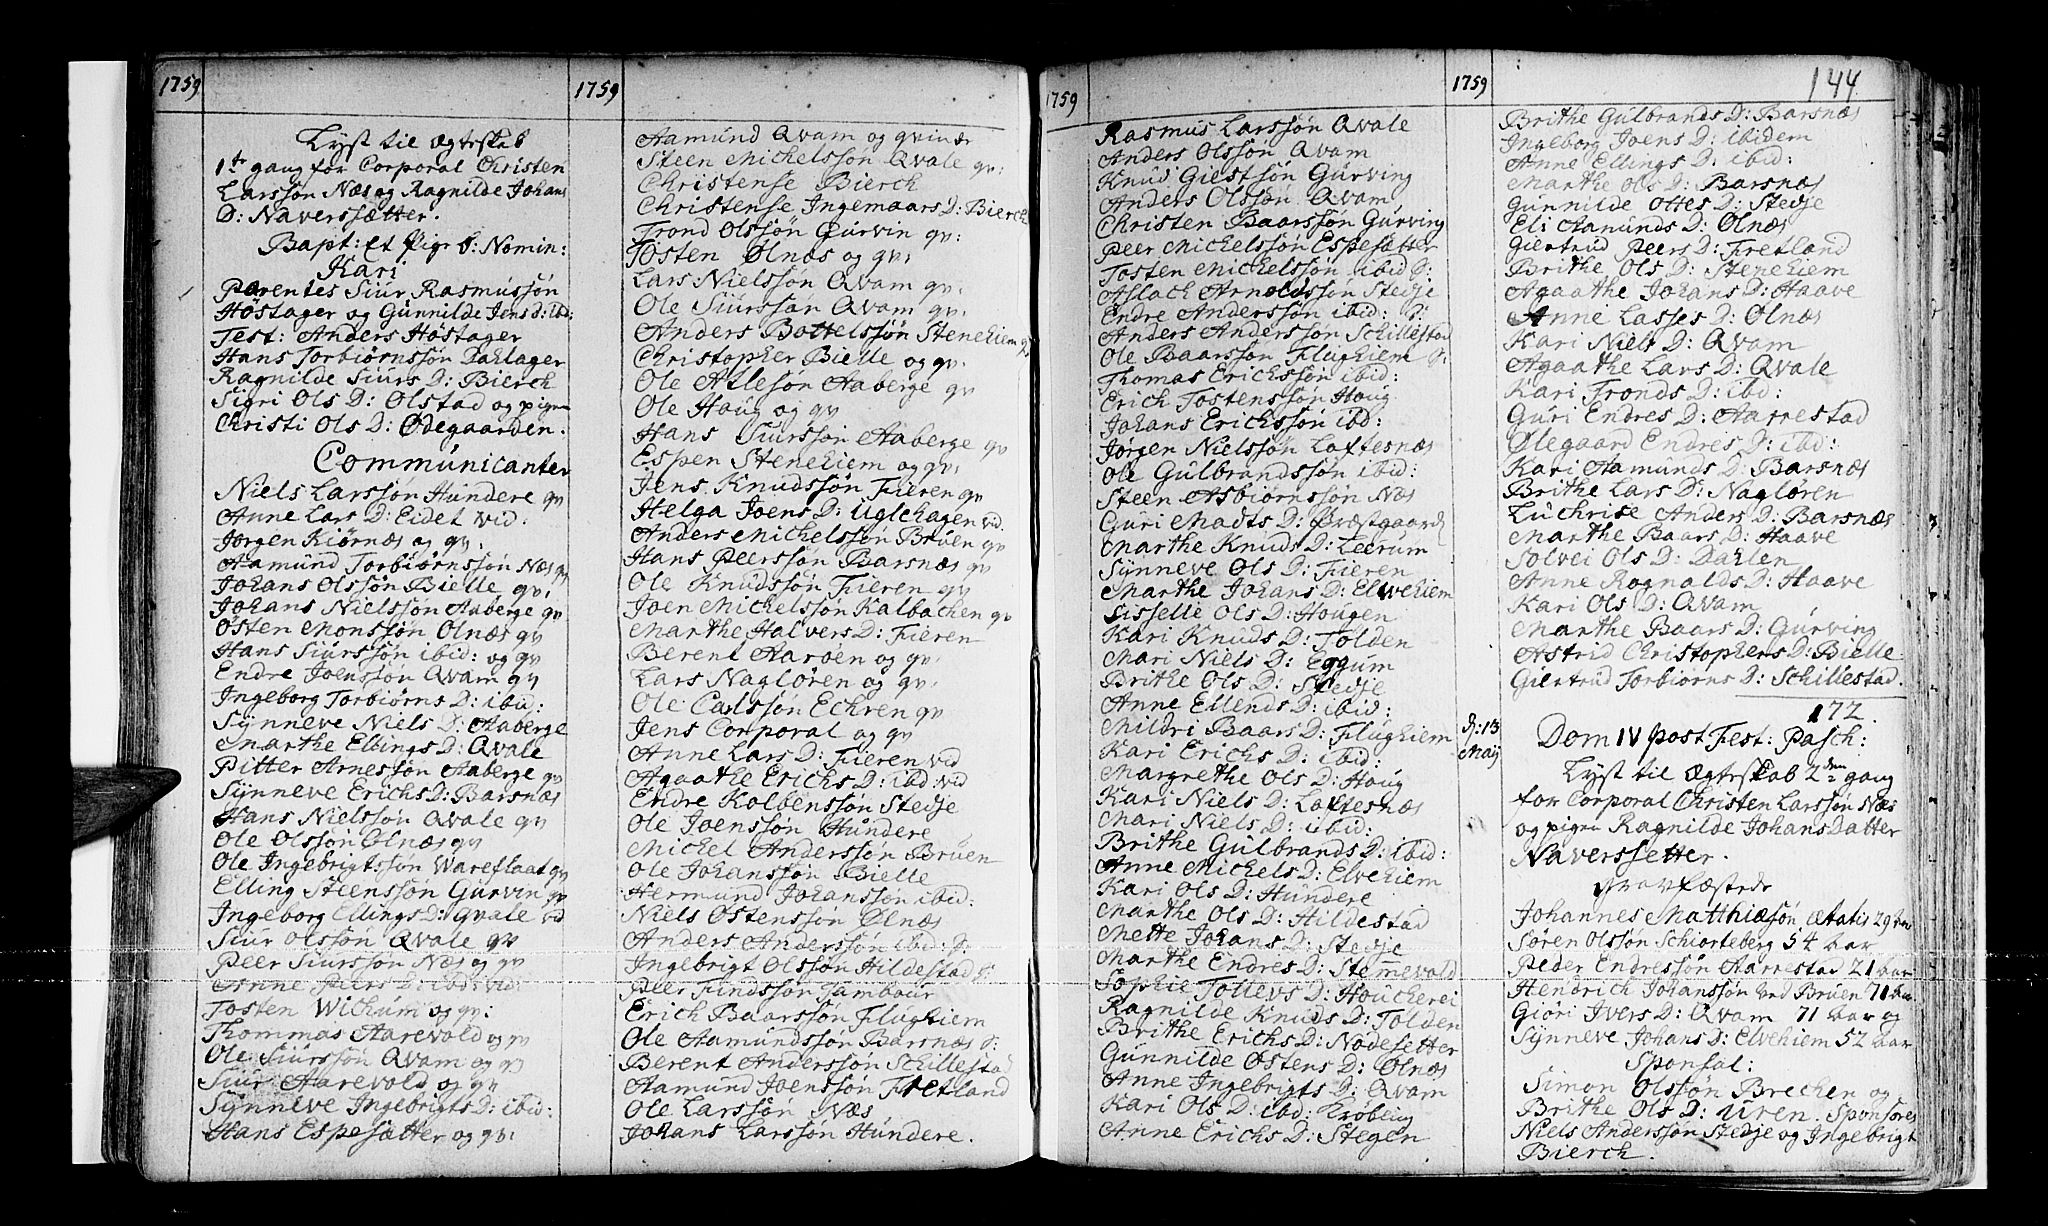 1759
Lyst til Ægteskab
1te gang for Corporal Christen
Larssøn Næs og Ragnilde Johans
D: Naverssætter.
Bapt: et Pige b: Nomin:
Kari
Parentes Siur Rasmussøn
Höstager og Gunnilde Jens d: ibd:
Test: Anders Höstager
Hans Torbiørnssøn Dahlager
Ragnilde Siurs D: Bierch
Sigri Ols D: Olstad og pigen
Christi Ols D: Ødegaarden.
Communicanter
Niels Larssøn Hundere qv
Anne Lars D: Eidet vid:
Jørgen Kiørnæs og qv:
Aamund Torbiørnssøn Næs qv
Johans Olssøn Bielle qv:
Johans Nielssøn Aaberge qv
Østen Monssøn Olnæs qv
Hans Siurssøn ibid: og qv
Endre Joenssøn Qvam qv
Ingeborg Torbiørns D: ibid:
Synneve Niels D: Aaberge
Marthe Ellings D: Qvale
Pitter Arnessøn Aaberge qv
Synneve Erichs D: Barsnæs
Hans Nielssøn Qvale qv
Ole Olssøn Ølnæs qv
Ole Ingebrigtssøn Wareflaat qv
Elling Steenssøn Gurvin qv
Ingeborg Ellings D: Qvale vd
Siur Olssøn Qvale qv
Peer Siurssøn Næs og qv
Anne Peers D: ibd: vid:
Tosten Wichum og qv:
Thommas Aarevold og qv
Ole Siurssøn Qvam og qv
Siur Aarevold og qv
Synneve Ingebrigts D: ibid:
Hans Espesætter og qv:
1759
Aamund Qvam og qvinde
Steen Michelssøn Qvale qv:
Christense Bierch
Christense Ingemaars D: Bierch
Trond Olssøn Gurvin qv:
Tosten Ølnæs og qv:
Lars Nielssøn Qvam qv:
Ole Siurssøn Qvam qv:
Anders Bottelssøn Stenehiem qv
Christopher Bielle og qv.
Ole Atlesøn Aaberge qv
Ole Haug og qv
Hans Siurssøn Aaberge qv
Espen Stenehiem og qv:
Jens Knudssøn Fieren qv
Helga Joens D: Uglehagen vid.
Anders Michelssøn Bruen qv
Hans Peerssøn Barsnæs qv
Ole Knudssøn Fieren qv
Joen Michelssøn Kalbachen qv
Marthe Halvers D: Fieren
Berent Aarøen og qv.
Lars Nagløren og qv.
Ole Carlssøn Echren qv
Jens Corporal og qv
Anne Lars D: Fieren vid
Agaathe Erichs D: ibd: vid
Endre Kolbenssøn Stedje
Ole Joenssøn Hundere
Michel Anderssøn Bruen
Ole Johanssøn Bielle
Hermund Johanssøn ibid:
Niels Ostenssøn Ølnæs
Anders Anderssøn ibid: D:
Ingebrigt Olssøn Hildestad D:
Peer Findssøn Tambour
Erich Baarssøn Flughiem
Ole Aamundssøn Barsnæs D:
Berent Anderssøn Schillestad
Aamund Joenssøn Fretland
Ole Larssøn Næs
Johans Larssøn Hundere.
1759
Rasmus Larssøn Qvale
Anders Olssøn Qvam
Knud Giestsøn Gurving
Anders Olssøn Qvam
Christen Baarssøn Gurving
Peer Michelssøn Espesætter
Tosten Michelssøn ibid D:
Aslach Arnoldssøn Stedje
Endre Anderssøn ibid: D:
Anders Anderssøn Schillestad
Ole Baarssøn Flughiem D:
Thomas Erichssøn ibid:
Erich Tostenssøn Houg
Johans Erichssøn ibd:
Jørgen Nielssøn Loftesnæs
Ole Gulbrandssøn ibid:
Steen Asbiørnssøn Næs
Guri Madts D: Præstgaard
Marthe Knuds D: Leerum
Synneve Ols D: Fieren
Marthe Johans D: Elvehiem
Sisselle Ols D: Hougen
Kari Knuds D: Tolden
Mari Niels D: Eggum
Brithe Ols D: Stedje
Anne Ellends D: ibid:
Mildri Baars D: Flughiem
Kari Erichs D: ibid:
Margrethe Ols D: Houg
Kari Niels D: Loftesnæs
Mari Niels D: ibid:
Brithe Gulbrands D: ibid:
Anne Michels D: Elvehiem
Kari Ols D: Hundere
Marthe Ols D: Hildestad
Mette Johans D: Stedje
Marthe Endres D: Stemmevold
Sophie Tollevs D: Houcherei
Ragnilde Knuds D: Tolden
Brithe Erichs D: Nodesetter
Gunnilde Østens D: Ølnæs
Anne Ingebrigts D: Qvam
Kari Ols D: ibd: Kroberg
Anne Erichs D: Stegen
1759
144
Brithe Gulbrands D: Barsnæs
Ingeborg Joens D: ibidem
Anne Ellings D: ibid:
Marthe Ols D: Barsnæs
Gunnilde Ottes D: Stedje
Eli Aamunds D: Olnæs
Giertrud Peers D: Fretland
Brithe Ols D: Stenehiem
Agaathe Johans D: Haave
Anne Lasses D: Olnæs
Kari Niels D: Qvam
Agaathe Lars D: Qvale
Kari Tronds D: ibid:
Guri Endres D: Aarrestad
Ølegaard Endres D: ibid:
Kari Aamunds D: Barsnæs
Brithe Lars D: Nagløren
Luchrise Anders D: Barsnæs
Marthe Baars D: Haave
Solvei Ols D: Dahlen
Anne Rognalds D: Haave
Kari Ols D: Qvam
Marthe Baars D: Gurving
Astrid Christophers D: Bielle
Giertrud Torbiørns D: Schillestad.
172.
D: 13
Maij
Dom IV post Fest: Pasch:
Lyst til Ægteskab 2den gang
for Corporal Christen Larssøn Næs
og pigen Ragnilde Johans Datter
Naverssetter.
Gravfæstede
Johannes Matthiesøn ætatis 29 bar
Søren Olssøn Schiorteberg 54 bar
Peder Endressøn Aarrestad 21 bar
Hendrich Johanssøn ved Bruen 71 bar
Giöri Ivers D: Qvam 71 bar og
Synneve Johans D: Elvehiem 52 bar
Sponsal:
Simon Olssøn Brechen og
Brithe Ols D: Uren. Sponsores
Niels Anderssøn Stedje og Ingebrigt
Bierch.